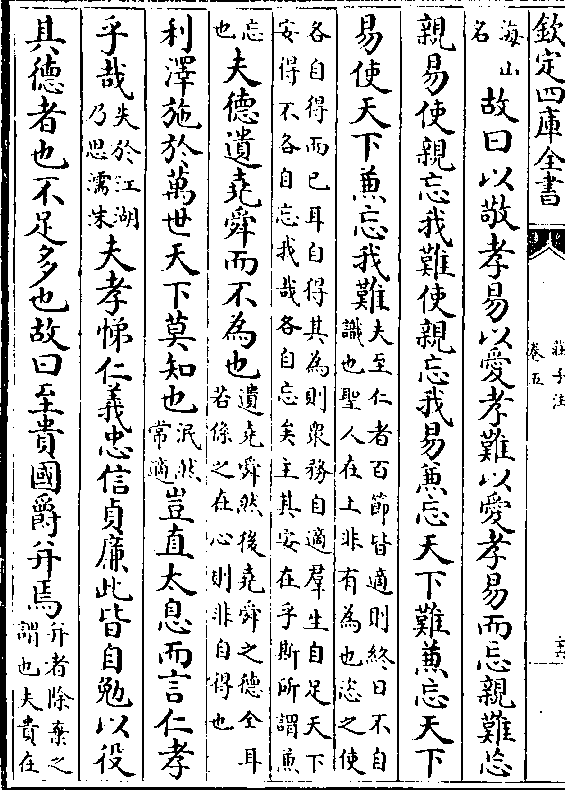 欽定四庫全書
莊子注
卷五
海山
名
故曰以敬孝易以愛孝難以愛孝易而忘親難忘
親易使親忘我難使親忘我易兼忘天下難兼忘天下
易使天下兼忘我難
夫至仁者百節皆適則終日不自
識也聖人在上非有為也恣之使
各自得而已耳自得其為則衆務自適羣生自足天下
安得不各自忘我哉各自忘矣主其安在乎斯所謂兼
忘
也
夫德遺堯舜而不為也
遺堯舜然後堯舜之德全耳
若係之在心則非自得也
利澤施於萬世天下莫知也
泯然
常適
豈直太息而言仁孝
乎哉
失於江湖
乃思濡沫
夫孝悌仁義忠信貞廉此皆自勉以役
其德者也不足多也故曰至貴國爵并焉
并者除棄之
謂也夫貴在